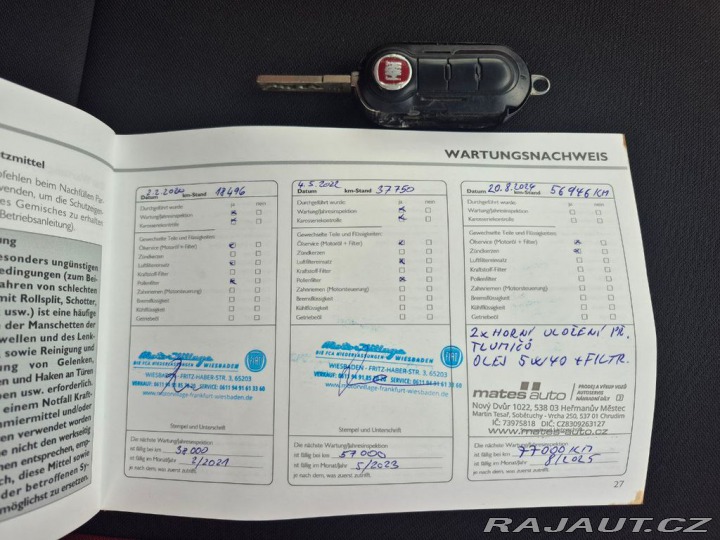 WARTUNGSNACHWEIS
tzmittel
fehlen beim Nachfüllen Fa-
wenden, um die Schutzeigen-
es Gemisches zu erhalten
Betriebsanleitung).
ung
esonders ungünstigen
edingungen (zum Bei-
ahren von schlechten
mit Rollsplit, Schotter,
usw.) ist eine häufige
der Manschetten der
wellen und des Lenk-
, sowie Reinigung und
von Gelenken,
und Haken an Türen
en usw. erforderlich.
einem Notfall Kraft-
miermittel und/oder
en verwendet worden
e nicht den werkseitig
n entsprechen, emp-
ch, diese Mittel sowie
der betroffenen Sy-
möglichst zu ersetzen.
Datum 2.2.2020 km-Stand 18496
Durchgeführt wurde: ja nein
Wartung/Jahresinspektion
Karosseriekontrolle
Gewechselte Teile und Flüssigkeiten:
Ölservice (Motoröl + Filter)
Zündkerzen
Luftfiltereinsatz
Kraftstoff-Filter
Pollenfilter
Zahnriemen (Motorsteuerung)
Bremsflüssigkeit
Kühlflüssigkeit
Getriebeöl
Motor Village
DIE FCA NIEDERLASSUNGEN WIESBADEN
FIAT
WIESBADEN · FRITZ-HABER-STR. 3, 65203
SERVICE: 0611 94 91 61 33 60
www.motorvillage-frankfurt-wiesbaden.de
Stempel und Unterschrift
Die nächste Wartung/Jahresinspektion
ist fällig bei km 38000
ist fällig im Monat/Jahr 2/2021
je nach dem, was zuerst zutrifft.
Datum 4.5.2022 km-Stand 37750
Durchgeführt wurde: ja nein
Wartung/Jahresinspektion
Karosseriekontrolle
Gewechselte Teile und Flüssigkeiten:
Ölservice (Motoröl + Filter)
Zündkerzen
Luftfiltereinsatz
Kraftstoff-Filter
Pollenfilter
Zahnriemen (Motorsteuerung)
Bremsflüssigkeit
Kühlflüssigkeit
Getriebeöl
Motor Village
DIE FCA NIEDERLASSUNGEN WIESBADEN
FIAT
WIESBADEN · FRITZ-HABER-STR. 3, 65203
www.motorvillage-frankfurt-wiesbaden.de
Stempel und Unterschrift
Die nächste Wartung/Jahresinspektion
ist fällig bei km 57000
ist fällig im Monat/Jahr 5/2023
je nach dem, was zuerst zutrifft.
Datum 20.8.2024 km-Stand 56946 KM
Durchgeführt wurde: ja nein
Wartung/Jahresinspektion
Karosseriekontrolle
Gewechselte Teile und Flüssigkeiten:
Ölservice (Motoröl + Filter)
Zündkerzen
Luftfiltereinsatz
Kraftstoff-Filter
Pollenfilter
Zahnriemen (Motorsteuerung)
Bremsflüssigkeit
Kühlflüssigkeit
Getriebeöl
2x HORNÍ ULOŽENÍ PŘ.
TLUMIČŮ
OLEJ 5W40 + FILTR.
mates auto
PRODEJ A VÝKUP VOZŮ
AUTOSERVIS
NÁHRADNÍ DÍLY
Nový Dvůr 1022, 538 03 Heřmanův Městec
Martin Tesař, Sobětuchy - Vrcha 250, 537 01 Chrudim
IČ: 73975818 DIČ: CZ8309263127
www.mates-auto.cz
Die nächste Wartung/Jahresinspektion
ist fällig bei km 77000 KM
ist fällig im Monat/Jahr 8/2025
je nach dem, was zuerst zutrifft.
27
RAJAUT.CZ